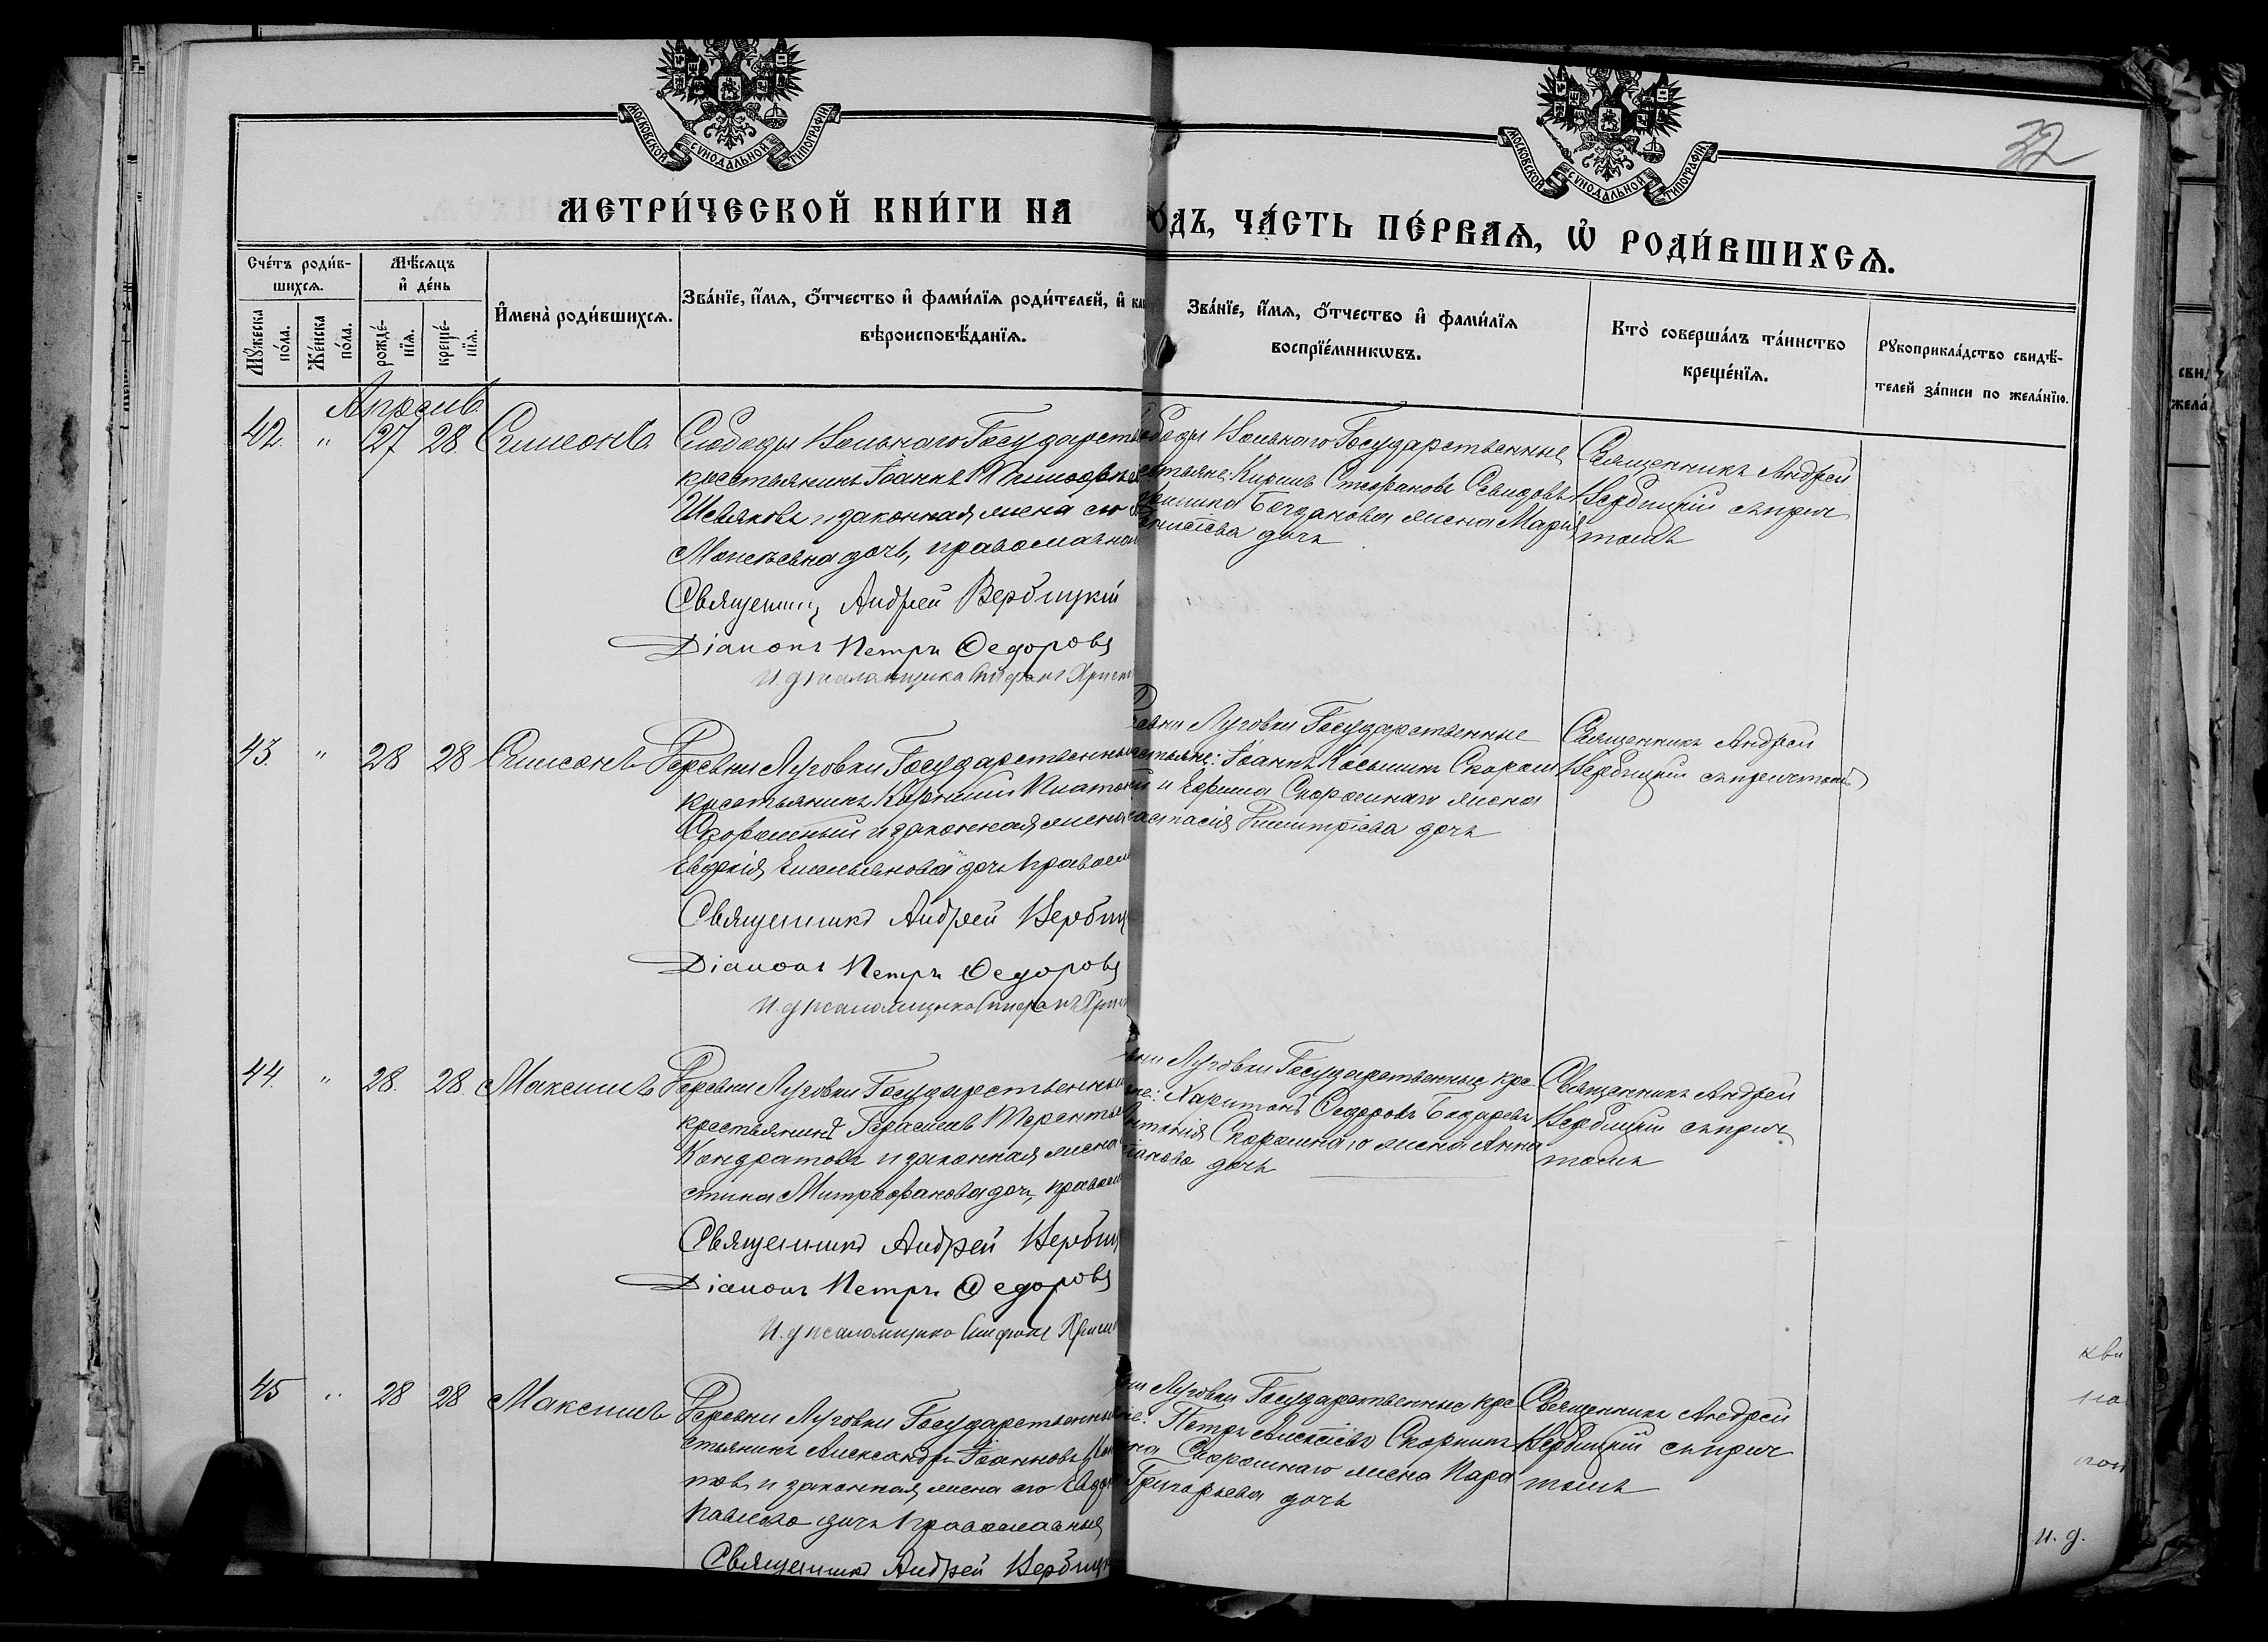 МОСКОВСКОЙ СѴНОДАЛЬНОЙ ТИПОГРАФІИ
МОСКОВСКОЙ СѴНОДАЛЬНОЙ ТИПОГРАФІИ
32
МЕТРИ́ЧЕСКОЙ КНИ́ГИ НА
О́ДЪ, ЧА́СТЬ ПЕ́РВАѦ, Ѡ҆ РОДИ́ВШИХСѦ.
Сче́тъ роди́в-
шихсѧ.
Мꙋ́жеска
по́ла.
Же́нска
по́ла.
Мѣ́сѧцъ
и҆ де́нь
рожде́-
нїѧ.
креще́-
нїѧ.
И҆мена̀ роди́вшихсѧ.
Зва́нїе, и҆́мѧ, о҆́тчество и҆ фами́лїѧ роди́телей, и҆ как
вѣроисповѣ́данїѧ.
Зва́нїе, и҆́мѧ, о҆́тчество и҆ фами́лїѧ
воспрїе́мникѡвъ.
Кто̀ соверша́лъ та́инство
креще́нїѧ.
Рꙋкоприкла́дство свидѣ́-
телей за́писи по жела́нїю.
Апрель
42. " 27 28 Симеонъ
Слободы Вольнаго Государств
крестьянинъ Іоаннъ
Шевяковъ и законная жена его
Моисеевна дочь, православна
Священникъ Андрей Вербицкій
Діаконъ Петръ Федоровъ
И. д. псаломщика Стефанъ Христ
ободы Вольнаго Государственные
естьяне: Кирилъ Стефановъ Севидовъ
Богданова жена Марія
дочь
Священникъ Андрей
Вербицкій съ прич
томъ
43. " 28 28 Симеонъ
Деревни Луговки Государственный
крестьянинъ Корнилій Платон
Скоромный и законная жена
Евдокія Емельянова дочь правосл
Священникъ Андрей Вербиц
Діаконъ Петръ Федоровъ
И. д. псаломщика Стефанъ Христ
ревни Луговки Государственные
естьяне: Іоаннъ Косьминъ Скором
и Ефима Скоромнаго жена
астасія Димитріева дочь
Священникъ Андрей
Вербицкій съ причтомъ
44. " 28. 28. Максимъ
Деревни Луговки Государственный
крестьянинъ Герасимъ Терентье
Кондратовъ и законная жена
стина Митрофанова дочь, правосл
Священникъ Андрей Вербиц
Діаконъ Петръ Федоровъ
И. д. псаломщика Стефанъ Христ
вни Луговки Государственные кре-
не: Харитонъ Федоровъ Бадаревъ
нтонія Скоромнаго жена Анна
іанова дочь
Священникъ Андрей
Вербицкій съ прич
томъ
45 " 28 28 Максимъ
Деревни Луговки Государственный
стьянинъ Александръ Іоанновъ Кон
товъ и законная жена его Евдок
Павлова дочь православныя
Священникъ Андрей Вербицк
ни Луговки Государственные кре
не: Петръ Алексіевъ Скоркинъ
на Скоромнаго жена Пара
Григорьева дочь
Священникъ Андрей
Вербицкій съ прич
томъ
и. д.